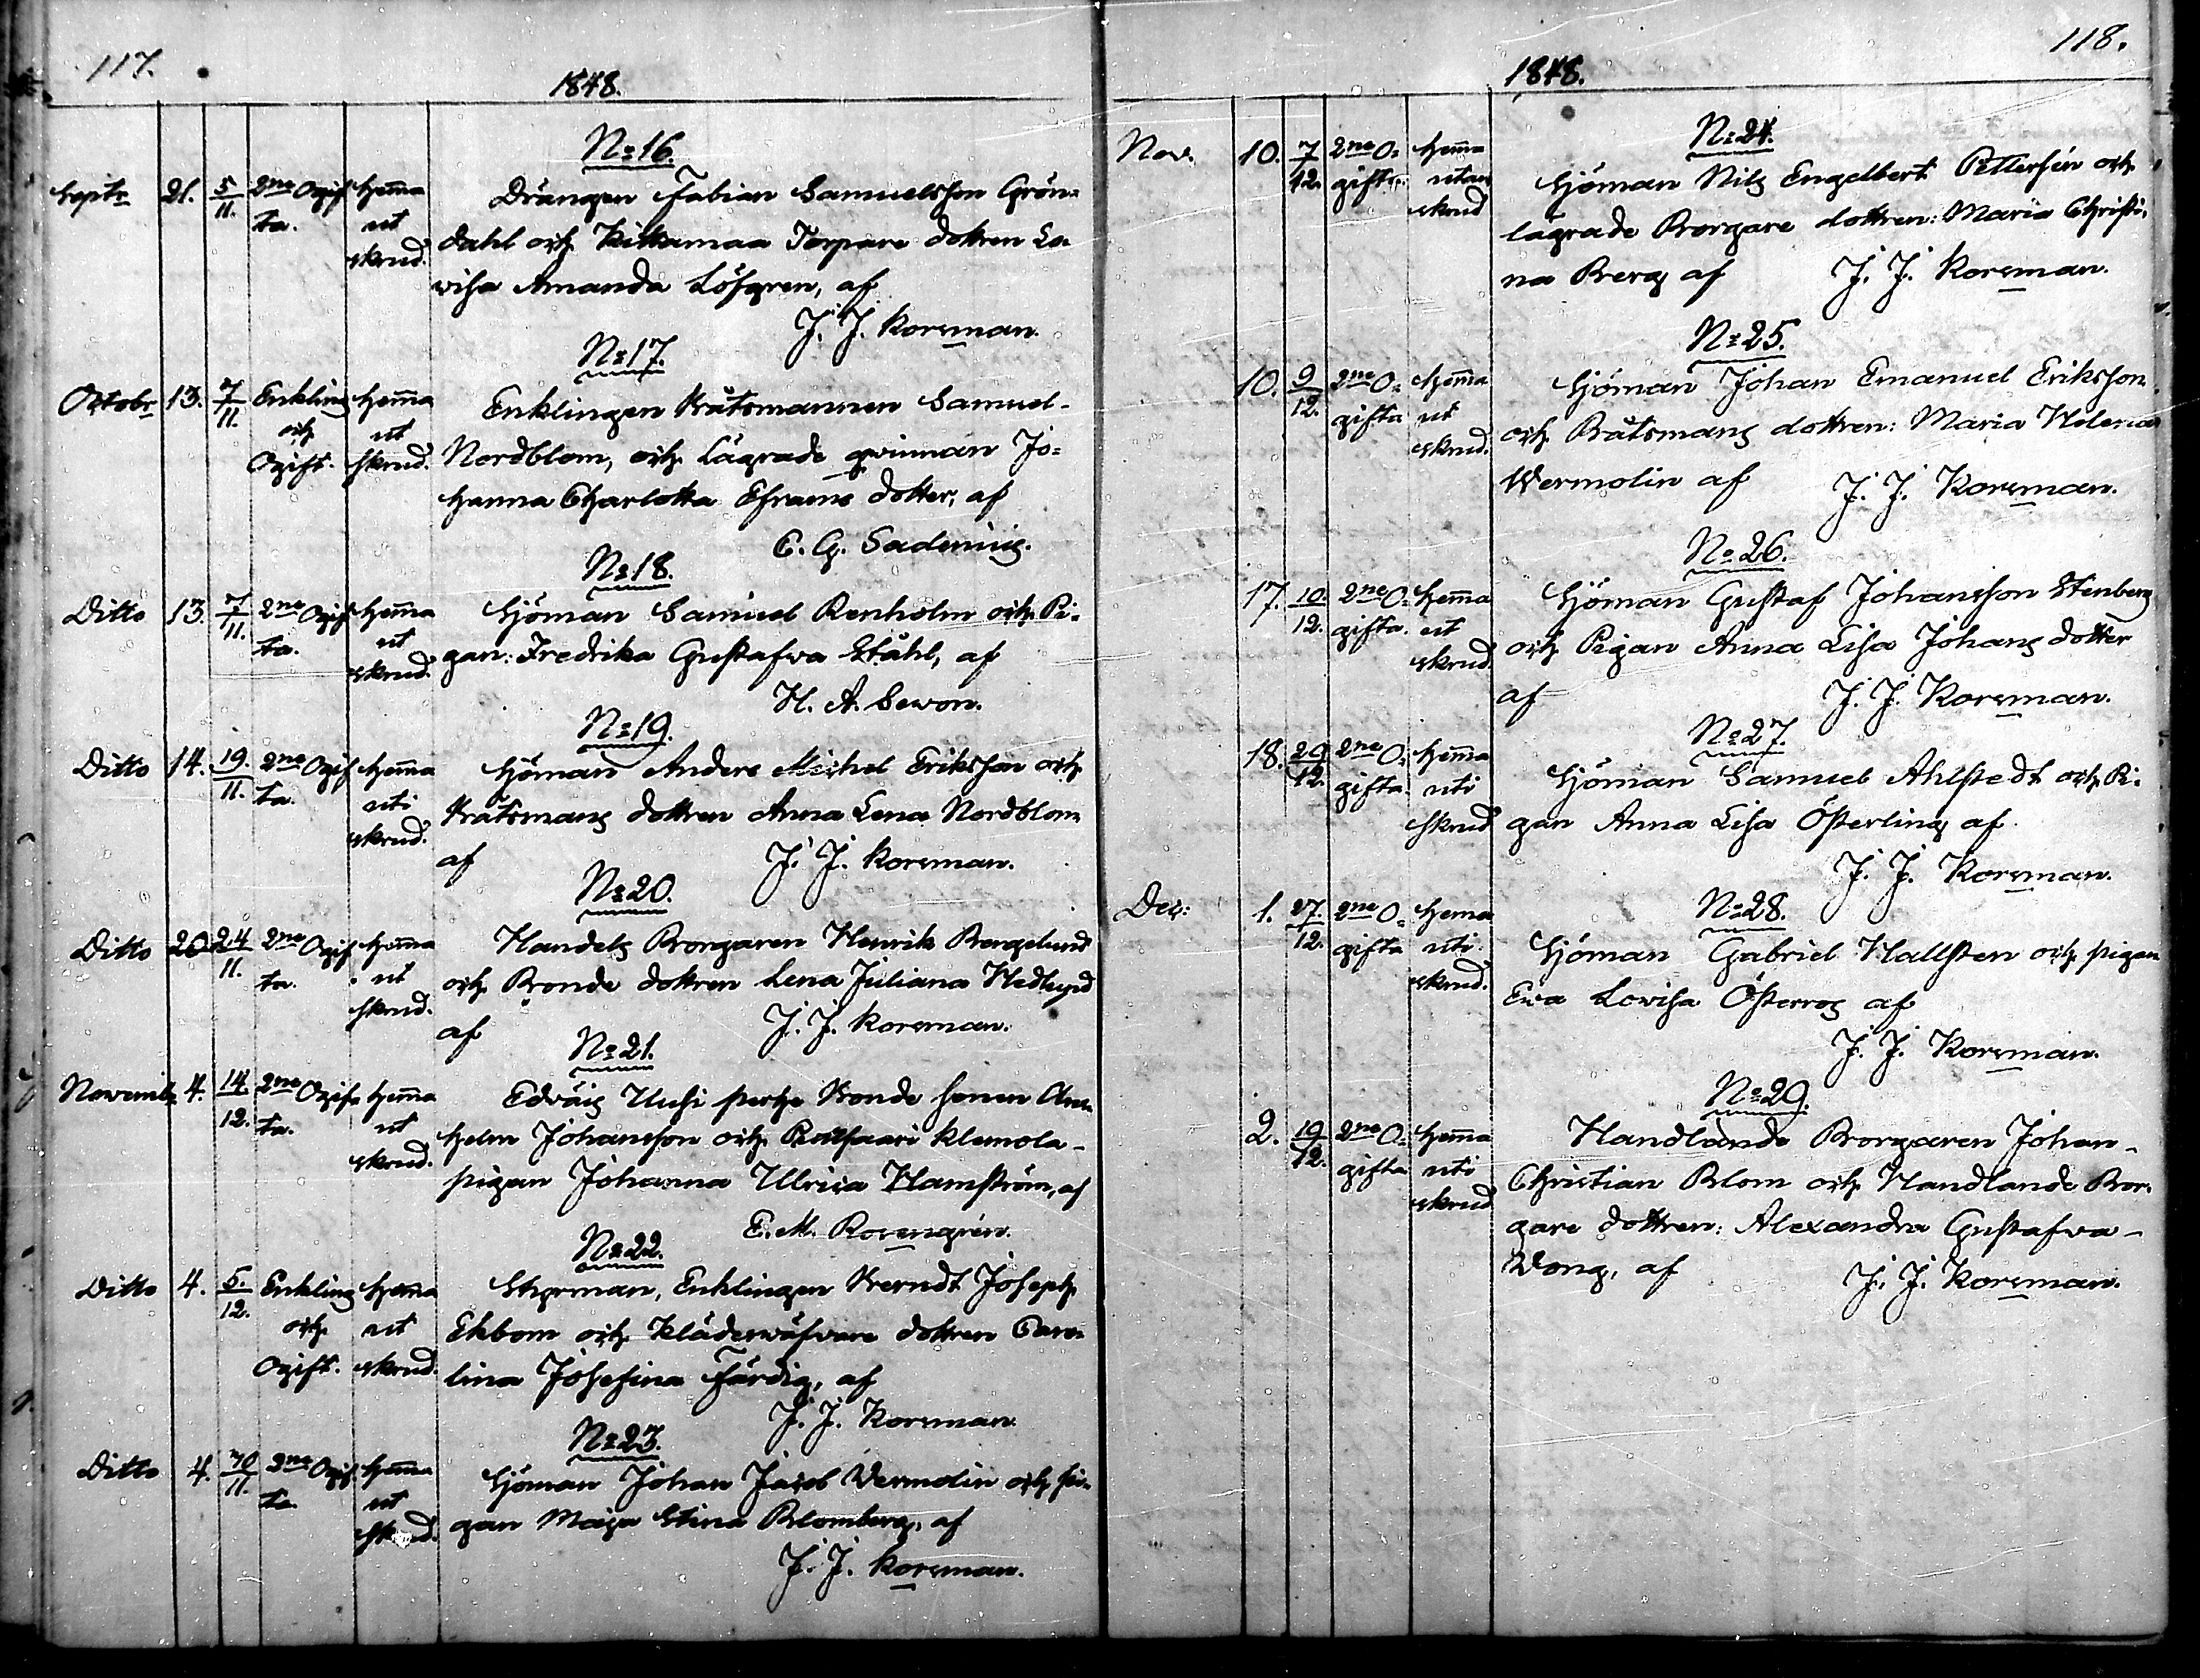 117.
1848.
Nº 16.
Septr 21. 5/11. 2ne Ogif Hem̄a Drängen Fabian Samuelsson Grön=
ta. ut dahl och Kittamaa Torpare dottren Lo-
skrud. visa Amanda Löfgren, af
J. J. Korsman.
Nº 17.
Octobr 13. 7/11. Enkling Hem̄a Enklingen Båtsmannen Samuel-
och ut Nordblom, och Lägrade qvinnan Jo=
Ogift. skrud. hanna Charlotta Efraims dotter, af
C. G. Sadenius.
Nº 18.
Ditto 13. 7/11. 2ne Ogif Hem̄a Sjöman Samuel Renholm och Pi-
ta. ut gan: Fredrika Gustafva Ståhl, af
skrud.
H. A. Sewon.
Nº 19.
Ditto 14. 19./11. 2ne Ogif Hem̄a Sjöman Anders Michel Eriksson och
ta. uti Båtsmans dottren Anna Lena Nordblom
skrud. af J. J. Korsman.
Nº 20.
Ditto 20 24/11. 2ne Ogif Hem̄a Handels Borgaren Henrik Bergelund
ta. ut och Bonde dottren Lena Juliana Hedlund
skrud. af J. J. Korsman.
Nº 21.
Novemb. 4. 14/12. 2ne Ogif Hem̄a Edväis Uusi perhe Bonde sonen
ta. ut helm Johansson och Klemola-
skrud. pigan Johanna Ulrica Hamström, af
E. M. Rosengrén.
Nº 22.
Ditto 4. 5./12. Enkling Hem̄a Styrman, Enklingen Berndt Joseph
och ut Ekbom och Klädesväfvare dottren Caro-
Ogift. skrud. lina Josefina Färdig, af
J. J. Korsman
Nº 23.
Ditto 4. 30/11. 2ne Ogif Hem̄a Sjöman Johan Jacob Vermolin och pi-
ta. ut gan Maja Stina Blomberg, af
skrud.
J. J. Korsman.
118.
1848.
Nº 24.
Nov. 10. 7/12. 2ne O= Hem̄a Sjöman Nils Engelbert Pettersén och
gifta. utan lägrade Borgare dottren: Maria Christi-
skrud na Berg af J. J. Korsman.
Nº 25.
10. 9/12. 2ne O= Hem̄a Sjöman Johan Emanuel Eriksson
gifta ut och Båtsmans dottren: Maria Helena
skrud. Wermolin af J. J. Korsman.
Nº 26.
17. 10./12. 2ne O= Hem̄a Sjöman Gustaf Johansson Stenberg
gifta. ut och Pigan Anna Lisa Johans dotter
skrud. af J. J. Korsman.
Nº 27.
18. 29/12. 2ne O= Hem̄a Sjöman Samuel Ahlstedt och Pi-
gifta. uti gan Anna Lisa Österling af
skrud
J. J. Korsman.
Nº 28.
Dec: 1. 27./12. 2ne O= Hema Sjöman Gabriel Hallsten och pigan
gifta uti Eva Lovisa Österros af
skrud.
J. J. Korsman.
Nº 29.
2. 19/12. 2ne O= Hem̄a Handlande Borgaren Johan-
gifta uti Christian Blom och Handlande Bor-
skrud gare dottren: Alexandra Gustafva-
Wong, af J. J. Korsman.